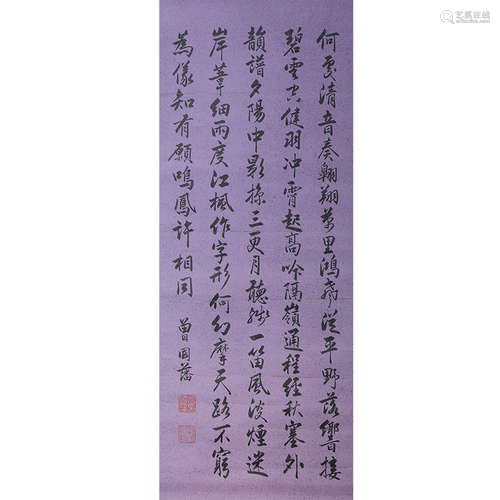 艺狐在线
何處清音奏翱翔萬里鴻聲從平野落響接
碧雲空健羽沖霄起高吟隔嶺通程經秋塞外
韻譜夕陽中影掠三更月聽殘一笛風淡煙迷
岸葦細雨度江楓作字形何幻摩天路不窮
為儀知有願鳴鳳許相同
曾國藩